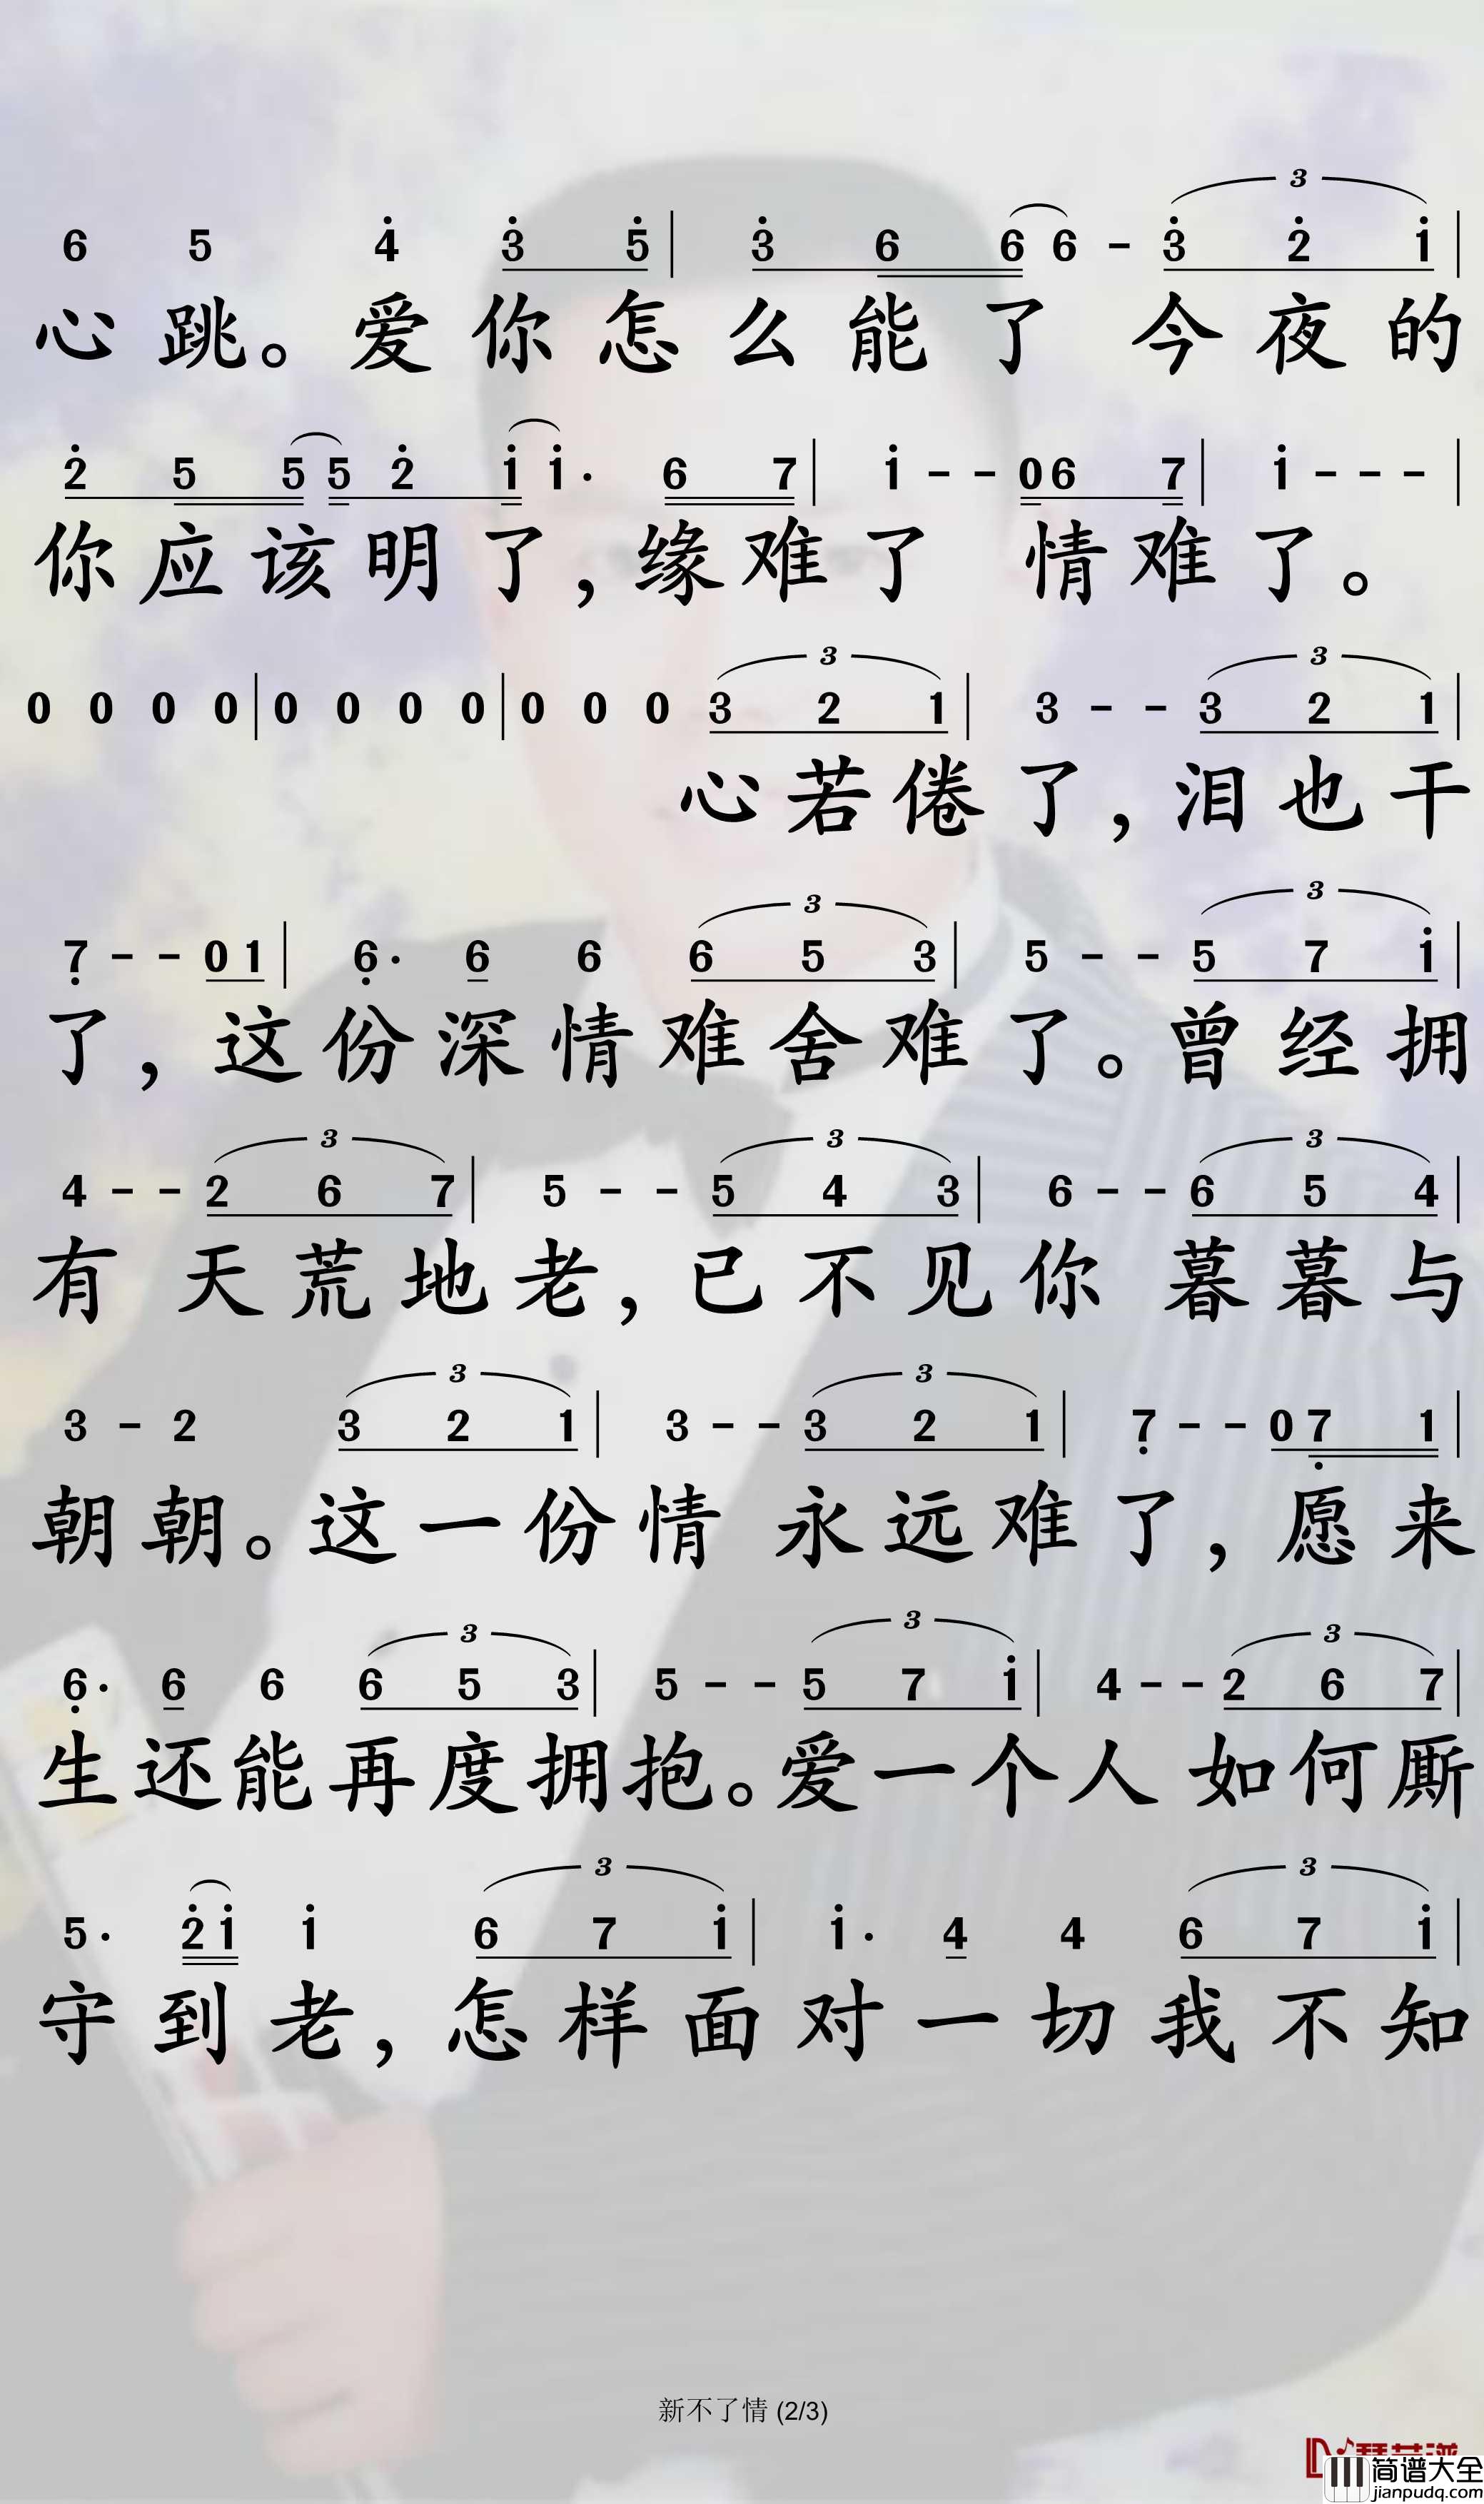 3
6 5 4̇ 3̇ 5̇ | 3̇ 6 6 6 - 3̇ 2̇ 1̇ |
心跳。爱你怎么能了 今夜的
2̇ 5 5 5 2̇ 1̇ 1̇· 6 7 | 1̇ - - 0 6 7 | 1̇ - - - |
你应该明了,缘难了 情难了。
3 3
0 0 0 0 | 0 0 0 0 | 0 0 0 3 2 1 | 3 - - 3 2 1 |
心若倦了,泪也干
3 3
7̣ - - 0 1 | 6̣· 6 6 6 5 3 | 5 - - 5 7 1̇ |
了,这份深情难舍难了。曾经拥
3 3 3
4 - - 2 6 7 | 5 - - 5 4 3 | 6 - - 6 5 4 |
有 天荒地老,已不见你 暮暮与
3 3
3 - 2 3 2 1 | 3 - - 3 2 1 | 7̣ - - 0 7̣ 1 |
朝朝。这一份情 永远难了,愿来
3 3 3
6̣· 6 6 6 5 3 | 5 - - 5 7 1̇ | 4 - - 2 6 7 |
生还能再度拥抱。爱一个人 如何厮
3 3
5· 2̇ 1̇ 1̇ 6 7 1̇ | 1̇· 4 4 6 7 1̇ |
守到老,怎样面对一切我不知
新不了情 (2/3)
简谱大全
jianpudq.com